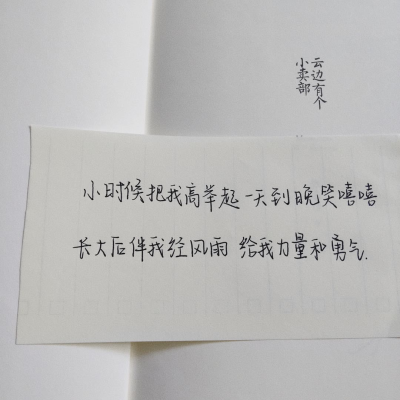 云边有个
小卖部
小时候把我高举起 一天到晚笑嘻嘻
长大后伴我经风雨 给我力量和勇气.